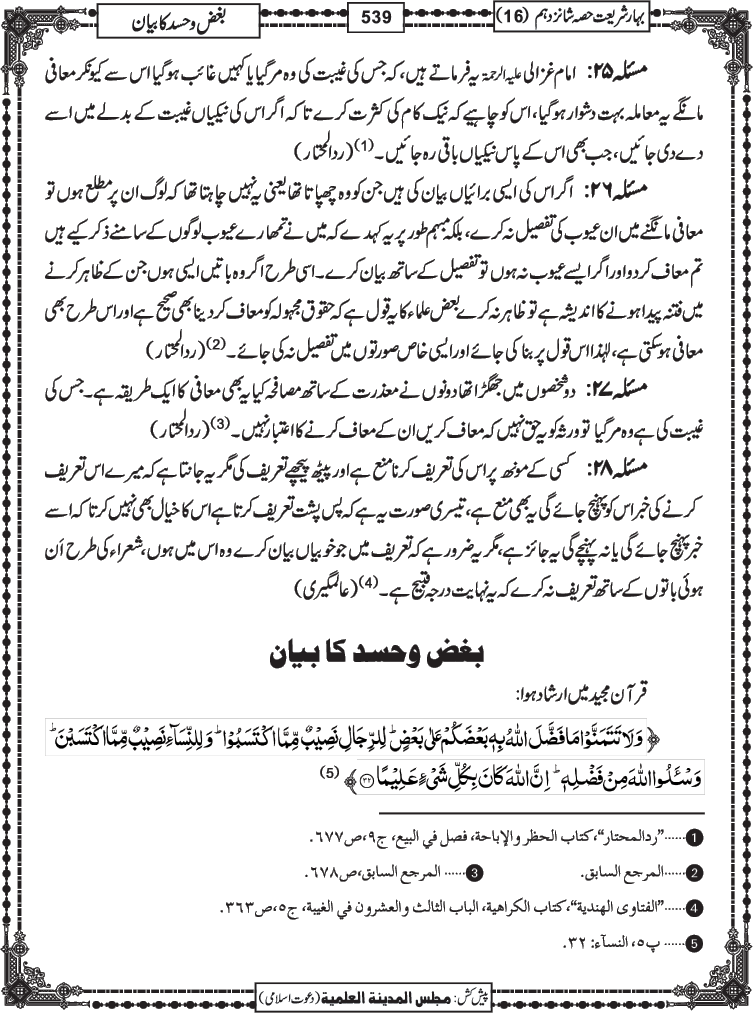 بہار شریعت حصہ شانزدہم (16)
539
بغض و حسد کا بیان
مسئلہ ۲۵: امام غزالی علیہ الرحمۃ یہ فرماتے ہیں، کہ جس کی غیبت کی وہ مرگیا یا کہیں غائب ہوگیا اس سے کیونکر معافی
مانگے یہ معاملہ بہت دشوار ہوگیا، اس کو چاہیے کہ نیک کام کی کثرت کرے تاکہ اگر اس کی نیکیاں غیبت کے بدلے میں اسے
دے دی جائیں، جب بھی اس کے پاس نیکیاں باقی رہ جائیں۔(1) (ردالمحتار)
مسئلہ ۲۶: اگر اس کی ایسی برائیاں بیان کی ہیں جن کو وہ چھپاتا تھا یعنی یہ نہیں چاہتا تھا کہ لوگ ان پر مطلع ہوں تو
معافی مانگنے میں ان عیوب کی تفصیل نہ کرے، بلکہ مبہم طور پر یہ کہدے کہ میں نے تمھارے عیوب لوگوں کے سامنے ذکر کیے ہیں
تم معاف کردو اور اگر ایسے عیوب نہ ہوں تو تفصیل کے ساتھ بیان کرے۔ اسی طرح اگر وہ باتیں ایسی ہوں جن کے ظاہر کرنے
میں فتنہ پیدا ہونے کا اندیشہ ہے تو ظاہر نہ کرے بعض علماء کا یہ قول ہے کہ حقوق مجہولہ کو معاف کردینا بھی صحیح ہے اور اس طرح بھی
معافی ہوسکتی ہے، لہٰذا اس قول پر بنا کی جائے اور ایسی خاص صورتوں میں تفصیل نہ کی جائے۔(2) (ردالمحتار)
مسئلہ ۲۷: دو شخصوں میں جھگڑا تھا دونوں نے معذرت کے ساتھ مصافحہ کیا یہ بھی معافی کا ایک طریقہ ہے۔ جس کی
غیبت کی ہے وہ مرگیا تو ورثہ کو یہ حق نہیں کہ معاف کریں ان کے معاف کرنے کا اعتبار نہیں۔(3) (ردالمحتار)
مسئلہ ۲۸: کسی کے مونھ پر اس کی تعریف کرنا منع ہے اور پیٹھ پیچھے تعریف کی مگر یہ جانتا ہے کہ میرے اس تعریف
کرنے کی خبر اس کو پہنچ جائے گی یہ بھی منع ہے، تیسری صورت یہ ہے کہ پس پشت تعریف کرتا ہے اس کا خیال بھی نہیں کرتا کہ اسے
خبر پہنچ جائے گی یا نہ پہنچے گی یہ جائز ہے، مگر یہ ضرور ہے کہ تعریف میں جو خوبیاں بیان کرے وہ اس میں ہوں، شعراء کی طرح اَن
ہوئی باتوں کے ساتھ تعریف نہ کرے کہ یہ نہایت درجہ قبیح ہے۔(4) (عالمگیری)
بغض و حسد کا بیان
قرآن مجید میں ارشاد ہوا:
﴿ وَلَا تَتَمَنَّوْا مَا فَضَّلَ اللّٰهُ بِهٖ بَعْضَكُمْ عَلٰى بَعْضٍ ؕ لِلرِّجَالِ نَصِیْبٌ مِّمَّا اكْتَسَبُوْا ؕ وَ لِلنِّسَآءِ نَصِیْبٌ مِّمَّا اكْتَسَبْنَ ؕ
وَ سْــٴَـلُوا اللّٰهَ مِنْ فَضْلِهٖ ؕ اِنَّ اللّٰهَ كَانَ بِكُلِّ شَیْءٍ عَلِیْمًا ۝۳۲ ﴾ (5)
1 ......”ردالمحتار“، كتاب الحظر والإباحة، فصل في البيع، ج۹، ص۶۷۷.
2 ......المرجع السابق. 3 ...... المرجع السابق، ص۶۷۸.
4 ......”الفتاوى الهندية“، كتاب الكراهية، الباب الثالث والعشرون في الغيبة، ج۵، ص۳۶۳.
5 ...... پ۵، النسآء: ۳۲.
پیش کش: مجلس المدينة العلمية (دعوت اسلامی)